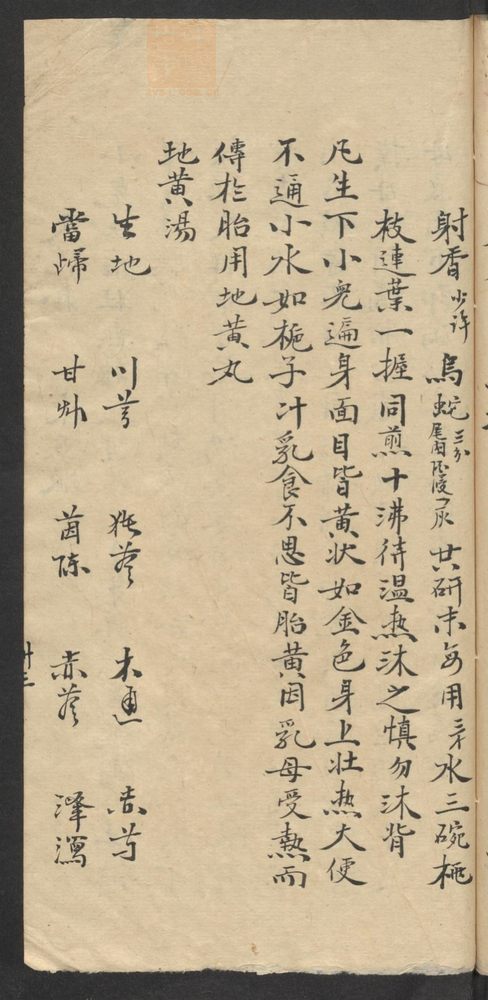 射香少許 烏蛇三分尾肉 共研末每用三錢水三碗桃
枝連葉一握同煎十沸待温热沐之慎勿沐背
凡生下小兒遍身面目皆黄状如金色身上壮热大便
不通小水如梔子汁乳食不思皆胎黄因乳母受熱而
傳於胎用地黄丸
地黄湯
生地 川芎 猪苓 木通 赤芍
當歸 甘艸 茵陈 赤苓 澤瀉
卄三